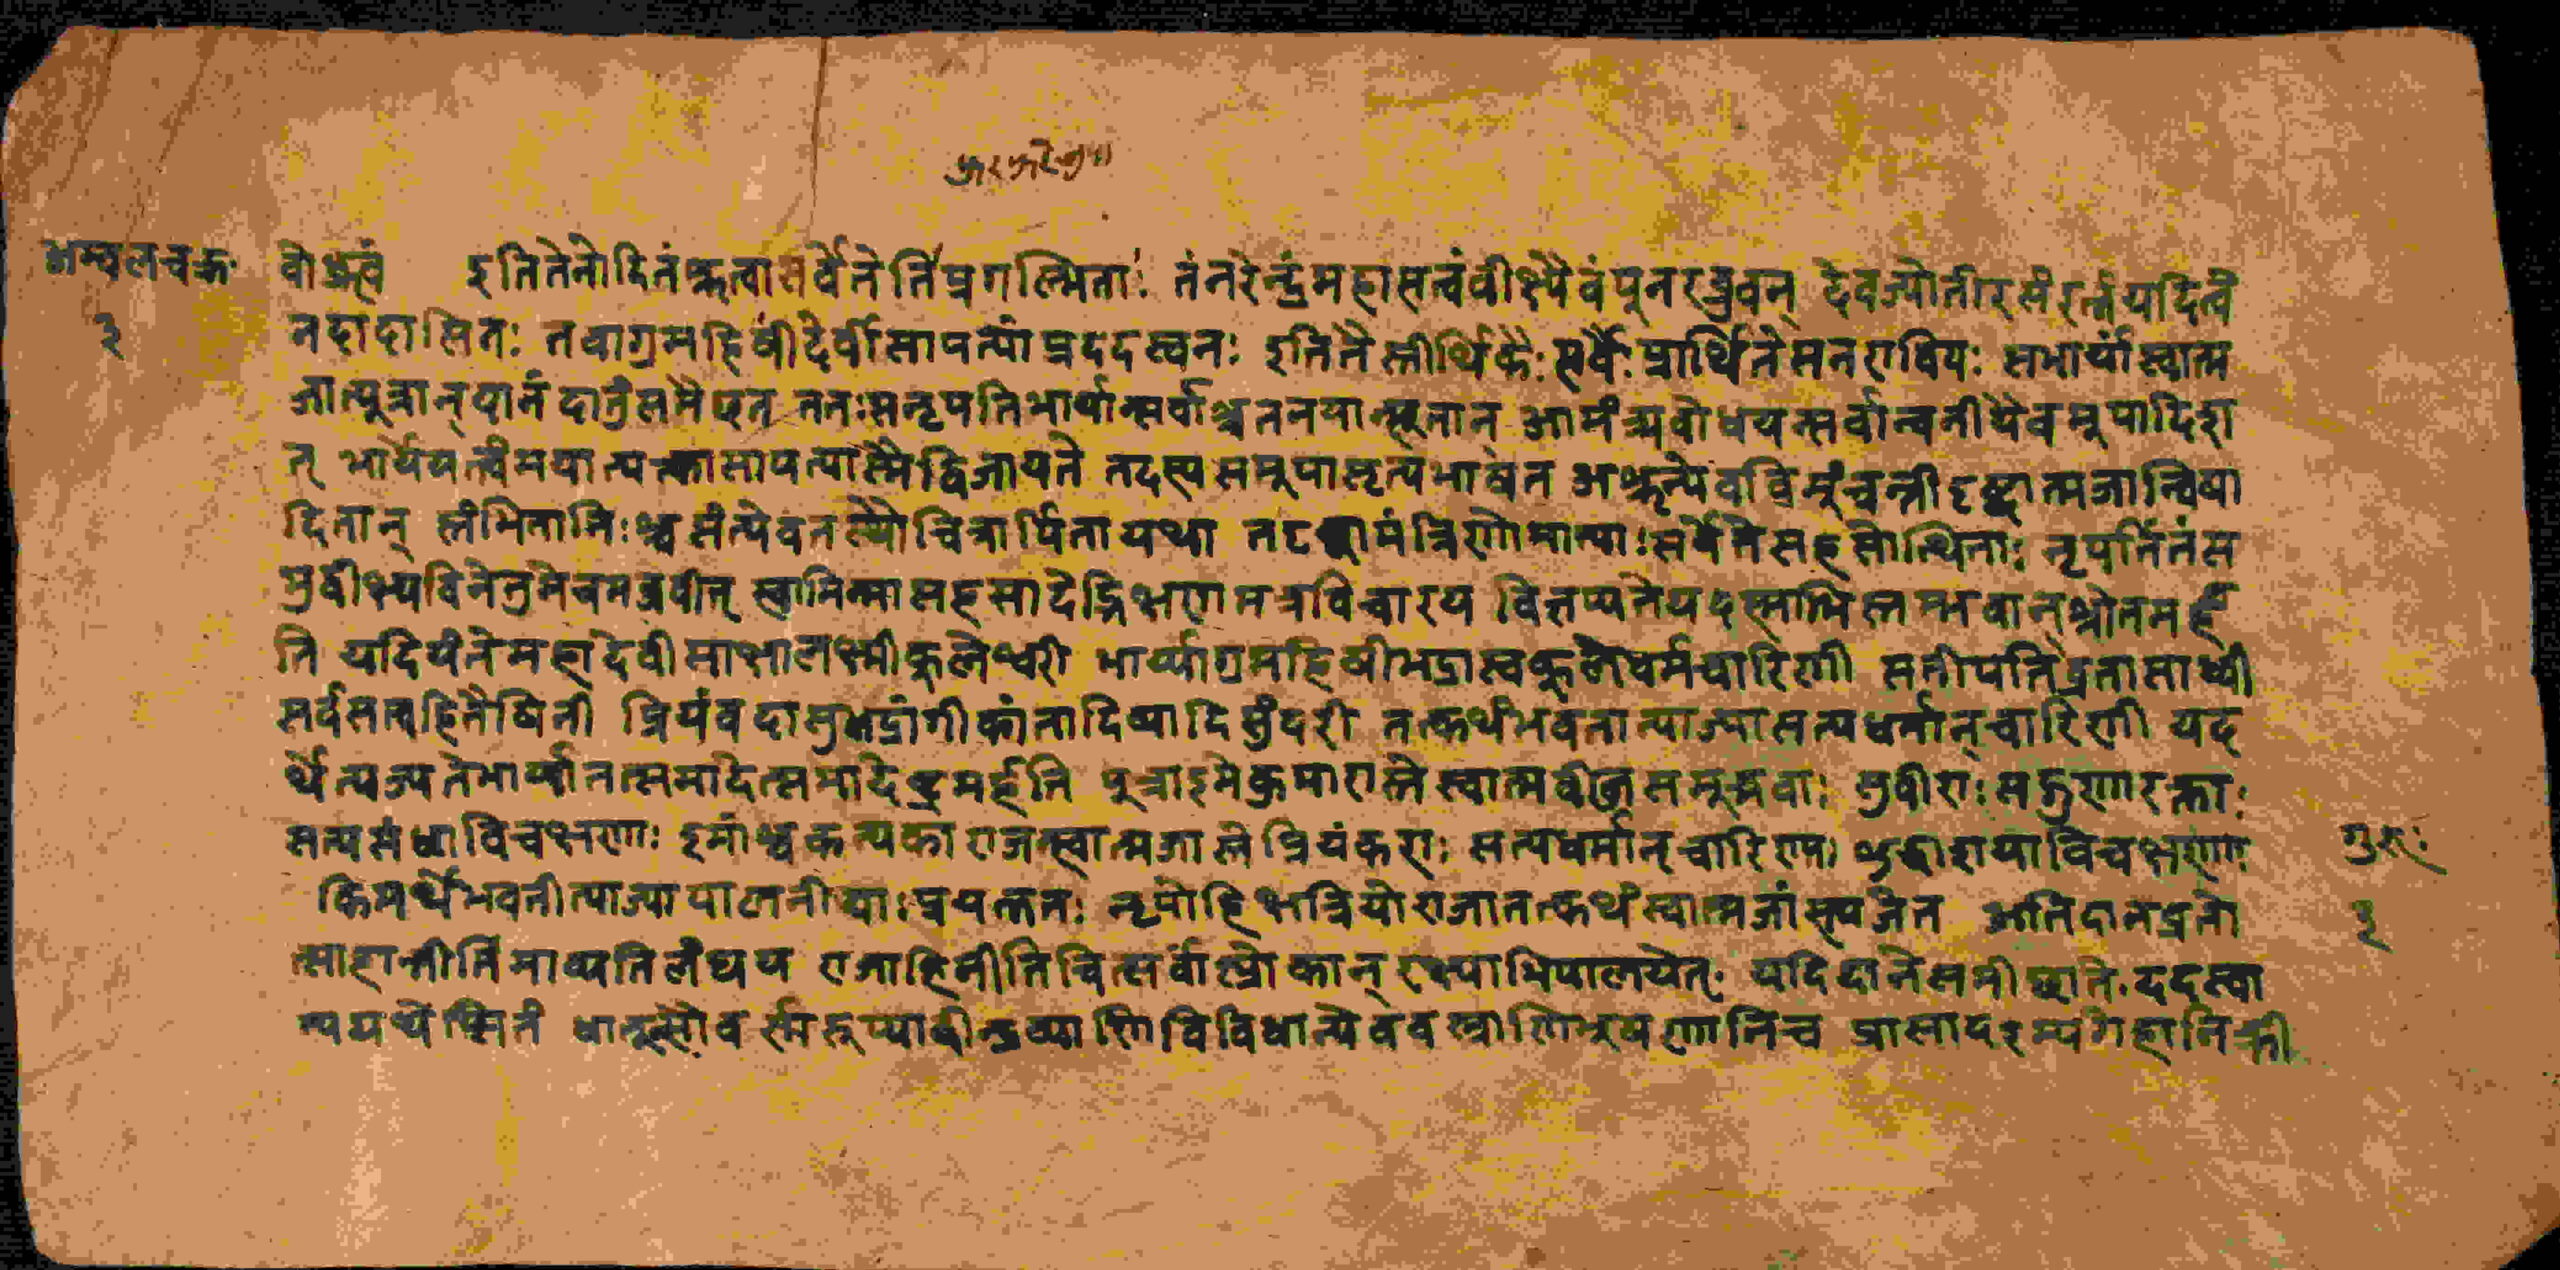 वोभ्रत्वं इतितेनोदितंश्रुत्वासर्वेतेतिप्रगल्भिताः तंनरेन्द्रंमहासत्वंवीक्ष्यैवंपूनरब्रुवन् देवज्योतीरसंरत्नंयदित्वं
नदादासितः तवाग्रमहिषींदेवींसापत्यांप्रददस्वनः इतितैस्तीर्थिकैः सर्वैः प्रार्थितेसनराधिपः सभार्यांस्वात्म
जात्पूत्रान्यानंदातुंसमैछत ततःसनृपतिभार्यान्सर्वाश्चतनयान्सूतान् आमंत्र्यवोधयन्सर्वान्वनीयैवमूपादिश
त् भार्येयत्त्वंमयात्यक्त्कासापत्यास्मैद्विजायते तदस्यसमूपासृत्यभाषत अश्रून्येवविमूंचन्तीदृष्ट्वात्मजान्विया
दितान् स्तंभितानिःश्वसंत्येवतस्थौचित्रार्पितायथा तदृष्ट्वामंत्रिणोमात्याःसर्वेतेसहसोत्थिताः नृपतिंतंस
मुवीक्ष्यविनेतुमेवमव्रवीत् स्वामिन्मासहसादेहिक्षणमत्रविचारय विज्ञप्यतेयदस्माभिस्तद्भवान्श्रोतमर्ह
ति यदियंतेमहादेवीसाक्षालक्ष्मीकूलेश्वरी भार्य्याग्रमहिषीभद्रास्वकूलेधर्मचारिणी सतीपतिव्रतासाध्वी
सर्वसत्वहितैषिनी प्रियंवदासुभद्रांगीकांतादिव्यादिसुंदरी तत्कथंभवतात्याज्यासत्यधर्मान्चारिणी यद
र्थेत्यज्यतेभार्य्यातत्समादेत्समादेष्टुमर्हति पूत्राइमेकुमारास्तेस्वात्मवीजसमूद्भवाः सुधीराःसद्गुणारक्ताः
सत्यसंधाविचक्षणाः इमाश्चकन्यकाराजन्स्वात्मजास्तेप्रियंकराः सत्यधर्मान्चारिण्यः शुद्धाशयाविचक्षणाः
किमर्थेभवतीत्याज्यापालनीयाःप्रयत्नतः नृपोहिक्षत्रियोराजातत्कथंस्वात्मजांस्त्यजेत अतिदानव्रतो
त्साहान्नीतिंमाव्यतिलंघय राजाहिनीतिवित्सर्वांल्लोकान्रक्ष्याभिपालयेत् यदिदानेसतीछाते ददस्वा
न्ययथेप्सितं धातून्सौवर्मरूप्यादीन्द्रव्याणिविविधान्येववस्त्राणिभूषणानिच प्रासादरम्यगेहानिक्री
गुरुः
३